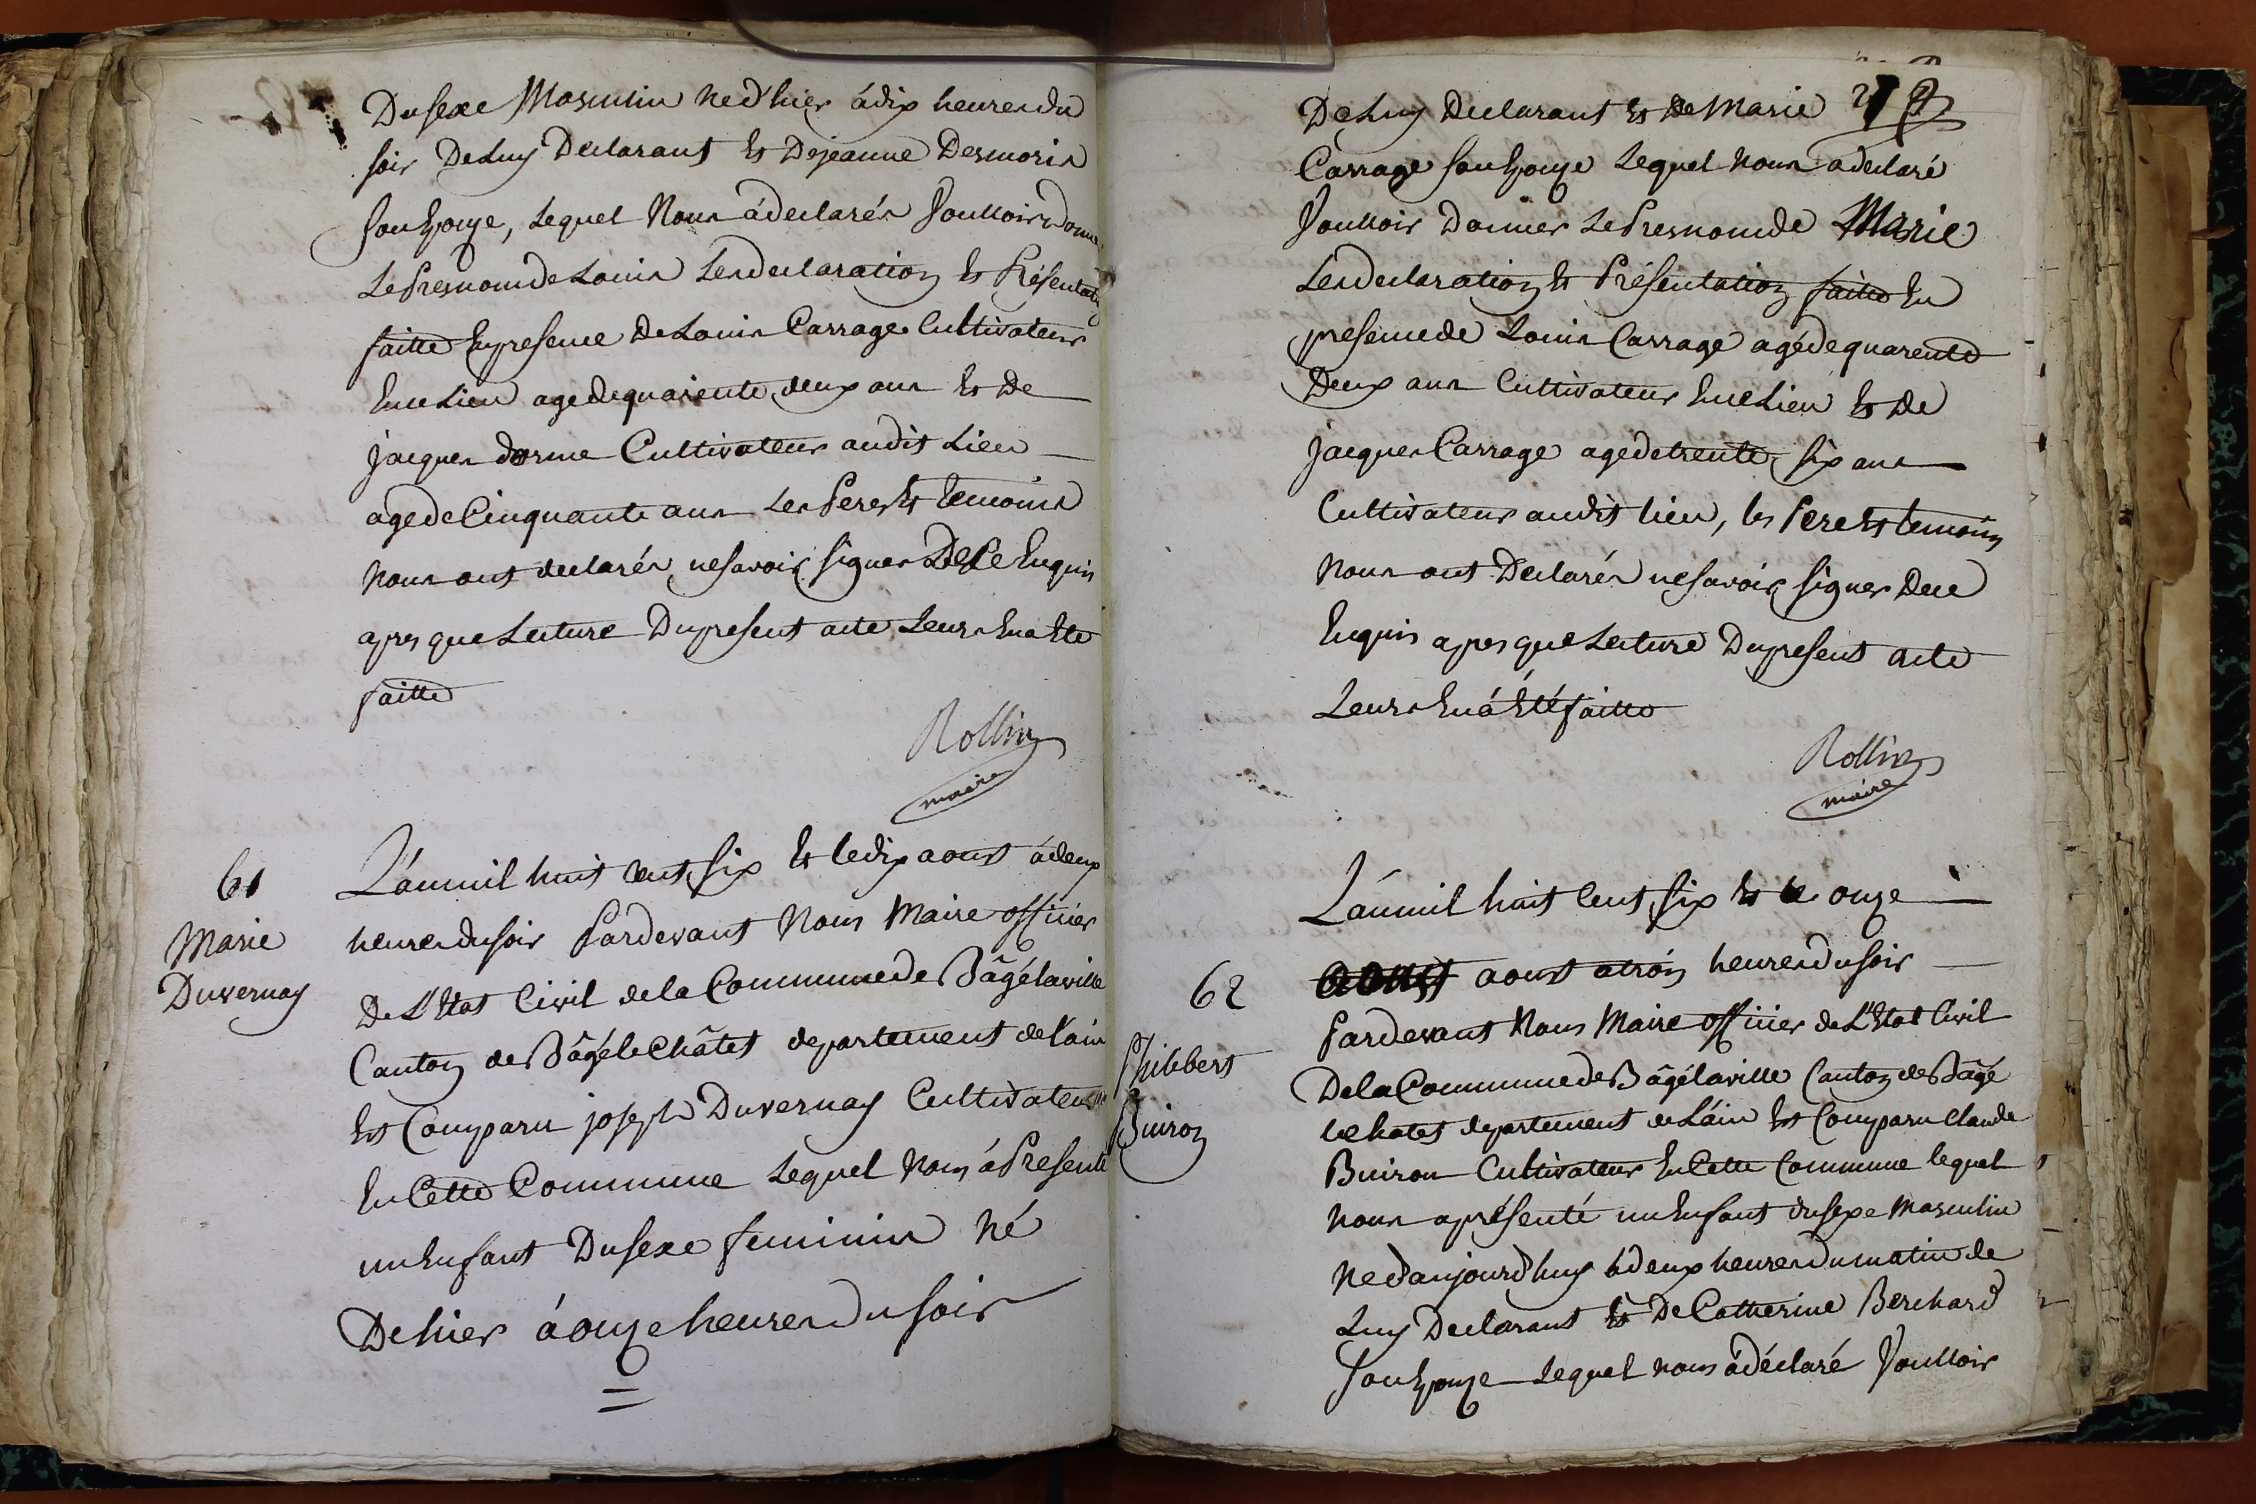 Dusexe Masculin Né d'hier à dix heures du
soir De Luy Déclarant Et De jeanne Desmoris
son Epouze, Lequel Nous à declarés Voulloir Donner
Le Presnom de Louis Les declaration Et Présentation
faitte En presence De Louis Carrage Cultivateur
En ce Lieu agé de quarente deux ans Et De
jacques dorme Cultivateur audit Lieu
agé de Cinquante ans Les Pere Et temoins
Nous ont declarés ne savoir signer De Ce Enquis
apres que Lecture Du present acte Leurs En a Eté
faitte
Rollin
maire
61
Marie
Duvernay
L'an mil huit cent six Et le dix aoust à deux
heures du soir Pardevant Nous Maire officier
De L'Etat Civil de la Commune de Bâgé la ville
Canton de Bâgé le Châtel departement de l'ain
Est Comparu joseph Duvernay Cultivateur
En Cette Commune Lequel Nous à Presenté
un Enfant Du sexe feminin Né
De hier à onze heures Du soir
De Luy Declarant Et De Marie
Carrage son Epouze Lequel Nous a declaré
Voulloir Donner Le Presnom de Marie
Les declaration Et Présentation faitte En
presence de Louis Carrage agé de quarente
Deux ans Cultivateur En ce Lieu Et De
jacques Carrage agé de trente six ans
Cultivateur audit lieu, les Pere Et temoins
Nous ont Declarés ne savoir signer De ce
Enquis apres que Lecture Du present acte
Leurs En à Eté faitte
Rollin
maire
62
Philibert
Buiron
L'an mil huit Cent six Et le onze
aoust a trois heures du soir
Pardevant Nous Maire officier de L'Etat Civil
De la Commune de Bâgé la ville Canton de Bâgé
le chatel departement de L'ain Est Comparu Claude
Buiron Cultivateur En Cette Commune lequel
Nous a présenté un Enfant du sexe Masculin
Né d'aujourd'huy à deux heures Du matin de
Luy Declarant Et De Catherine Berchard
son Epouze Lequel nous à déclaré Voulloir